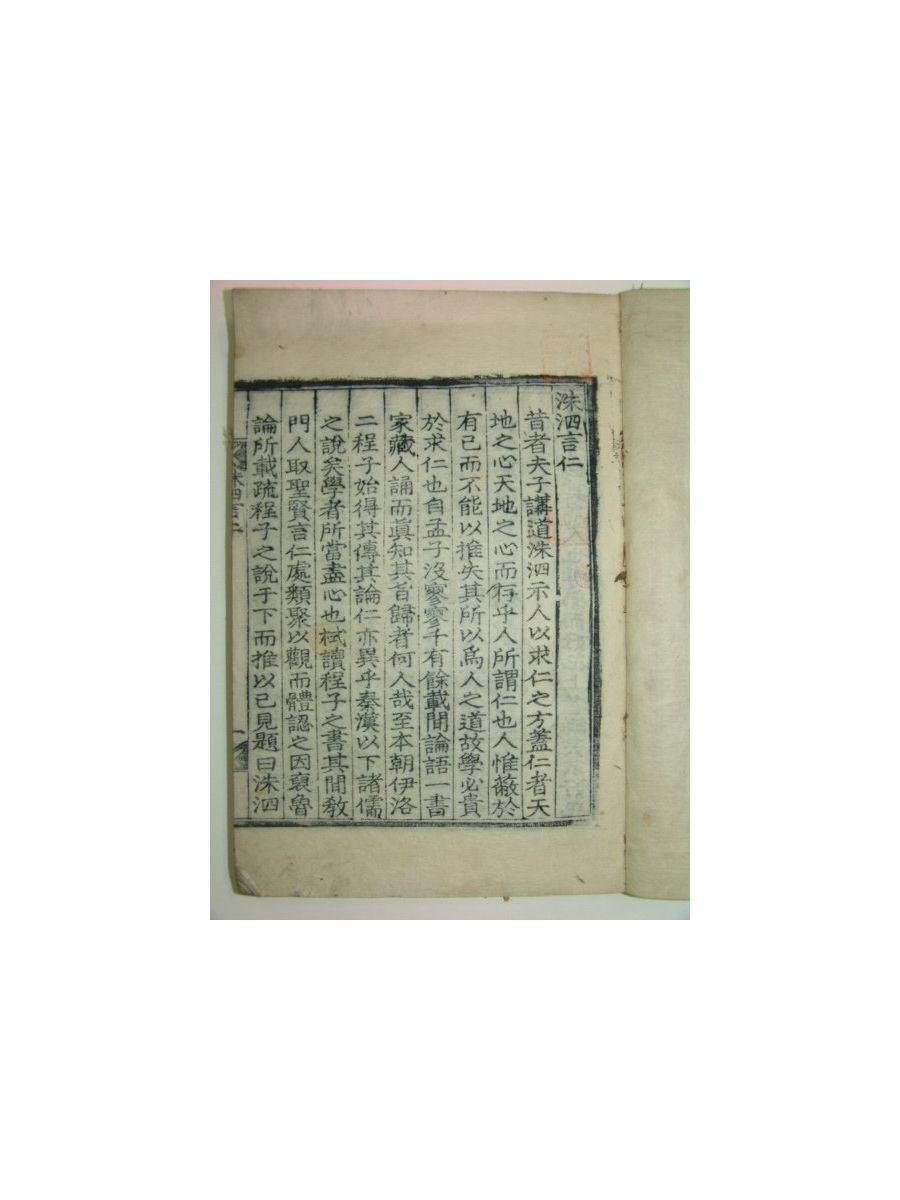 洙泗言仁
昔者夫子講道洙泗示人以求仁之方蓋仁者天
地之心天地之心而存乎人所謂仁也人惟蔽於
有己而不能以推失其所以爲人之道故學必貴
於求仁也自孟子沒寥寥千有餘載間論語一書
家藏人誦而眞知其旨歸者何人哉至本朝伊洛
二程子始得其傳其論仁亦異乎秦漢以下諸儒
之說矣學者所當盡心也栻讀程子之書其間敎
門人取聖賢言仁處類聚以觀而體認之因裒魯
論所載疏程子之說于下而推以己見題曰洙泗
洙泗言仁